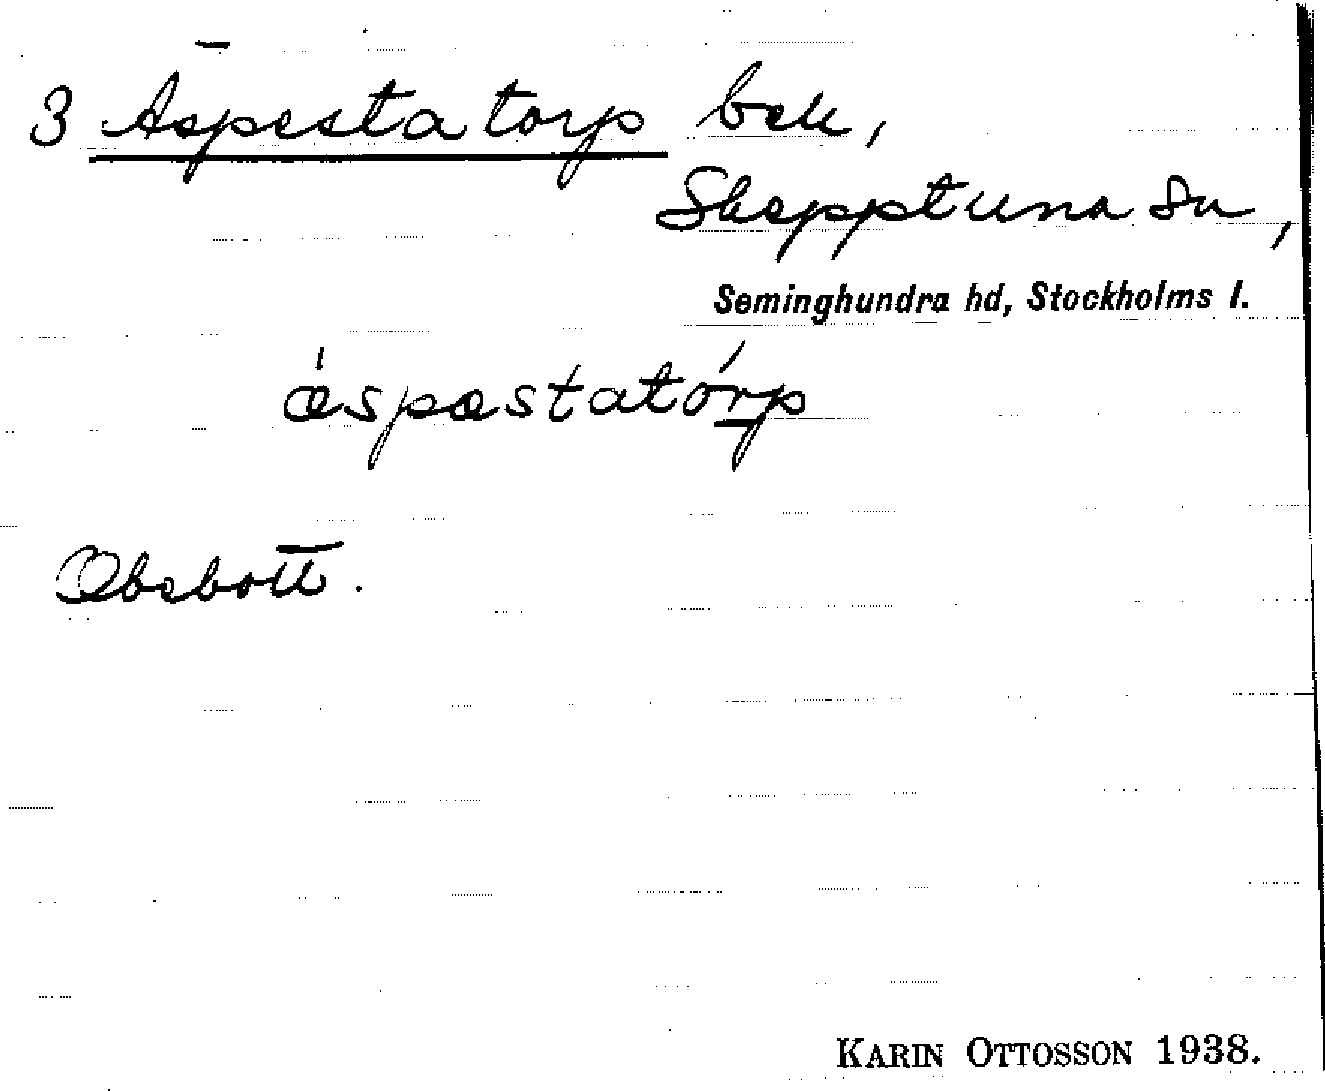 3 Äspesta torp bek,
Skepptuna sn,
Seminghundra hd, Stockholms l.
æ̀spæstatórp
Obebott.
KARIN OTTOSSON 1938.